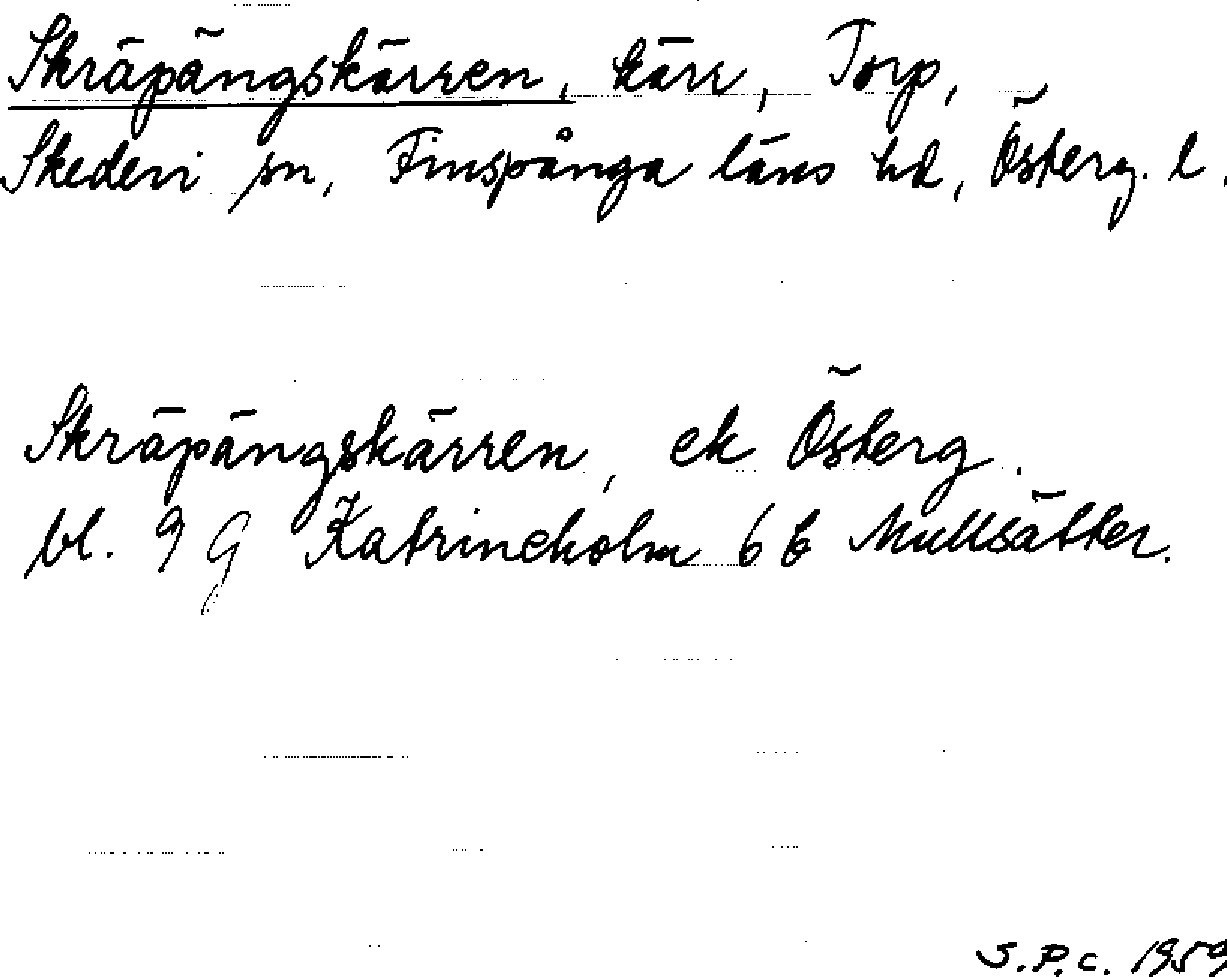 Skräpängskärren, kärr, Torp,
Skedevi sn, Finspånga läns hd, Österg. l.
Skräpängskärren, ek Österg.
bl. 9 G Katrineholm 6 b Mullsätter.
S.P.C. 1959